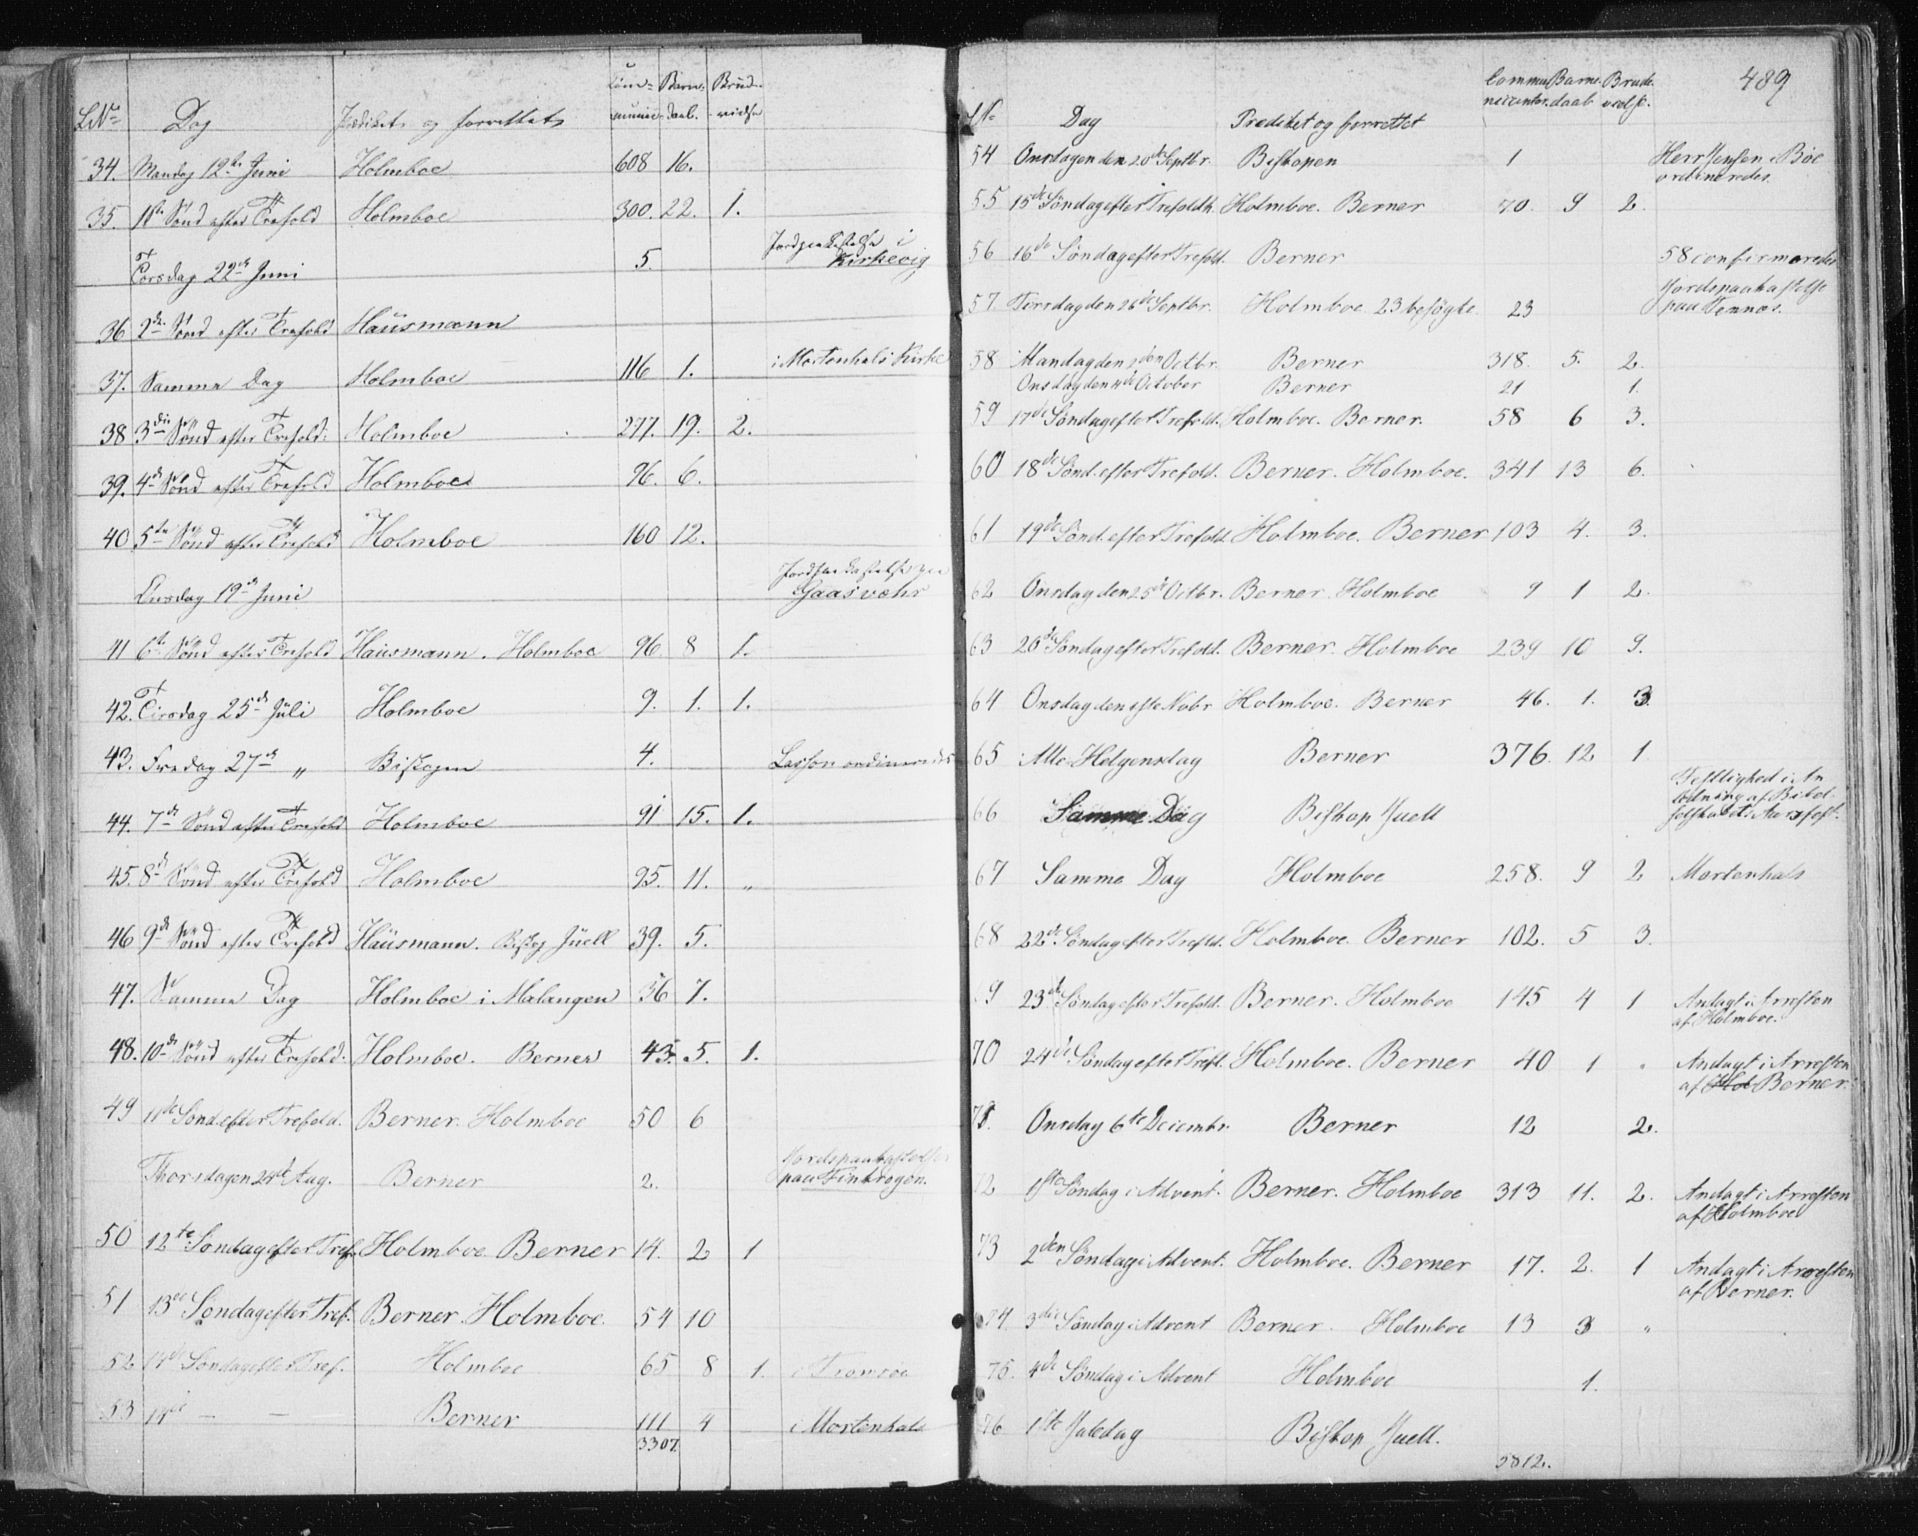 LN Dag Prædiket og forrettet Com-munic. Barne-daab. Brude-vielse
34. Mandag 12te Juni Holmboe 608 16.
35. 1ste Sønd efter Trefold Holmboe 300. 22. 1.
Torsdag 22de Juni 5. Jordpaakastelse i Kirkevig
36 2den Sønd efter Trefold Hausmann
37. Samme Dag Holmboe 116 1. i Mortenhals Kirke
38 3die Sønd efter Trefold: Holmboe 277. 19. 2.
39. 4de Sønd efter Trefold Holmboe 96. 6.
40 5te Sønd efter Trefold Holmboe 160 12.
Onsdag 19de Juni Jordpaakastelse paa Gaasvæhr
41 6te Sønd efter Trefold Hausmann. Holmboe 96 8 1.
42. Tirsdag 25de Juli Holmboe 9. 1. 1.
43. Fredag 27de " Biskopen 4. ordineredes
44. 7de Sønd efter Trefold Holmboe 91 15. 1.
45. 8de Sønd efter Trefold Holmboe 95. 11. "
46 9de Sønd efter Trefold Hausmann. Biskop Juell 39. 5.
47. Samme Dag Holmboe i Malangen 36 7.
48. 10de Sønd efter Trefold: Holmboe. Berner 43. 5. 1.
49 11te Sønd efter Trefold. Berner. Holmboe 50 6
Thorsdagen 24de Aug. Berner 2. Jordspaakastelse paa Finkrogen.
50 12te Søndag efter Tref. Holmboe Berner 14. 2 1
51 13de Søndag efter Tref. Berner. Holmboe. 54 10
52 14de Søndag efter Tref. Holmboe 65 8 1. i Tromsøe
53 14de — — Berner 111 4 i Mortenhals
3307.
489
LN Dag Prediket og forrettet Communicanter. Barnedaab Brudevielse.
54 Onsdagen den 20de Septbr. Biskopen 1 Herr Jensen i Bøe
ordineredes.
55 15de Søndag efter Trefoldh. Holmboe. Berner 70. 9 2.
56 16de Søndag efter Trefold. Berner 58 confirmeredes
57 Torsdag den 26de Septbr. Holmboe 23 besøgte. 23 Jordspaakastelse
paa Tennes.
58 Mandag den 2den Octbr. Berner 318. 5. 2.
Onsdag den 4de October Berner 21 1.
59 17de Søndag efter Trefold. Holmboe. Berner. 58 6 3.
60 18de Sønd. efter Trefold. Berner. Holmboe. 341 13 6.
61 19de Sønd. efter Trefold. Holmboe. Berner 103 4. 3.
62 Onsdag den 25de Octbr. Berner Holmboe 9 1 2.
63 20de Søndag efter Trefold. Berner. Holmboe 239 10 9.
64 Onsdag den 1ste Novbr Holmboe. Berner 46. 1. 3.
65 Alle Helgensdag Berner 376. 12 1
66 Samme Dag Biskop Juell Festlighed i An
ledning af Bibel
selskabets Aarsfest.
67 Samme Dag Holmboe 258. 9 2 Mortenhals
68 22de Søndag efter Trefld. Holmboe. Berner 102. 5 3.
9 23de Søndag efter Trefold. Berner. Holmboe 145 4 1 Andagt i Arresten
af Holmboe.
70 24de Søndag efter Trefl. Holmboe. Berner 40 1 " Andagt i Arresten
af Hol Berner.
71. Onsdag 6te Decembr. Berner 12 2.
72 1ste Søndag i Advent. Berner. Holmboe 313 11. 2. Andagt i Arresten
af Holmboe
73 2den Søndag i Advent. Holmboe. Berner 17. 2. 1 Andagt i Arresten
af Berner.
74. 3die Søndag i Advent Berner. Holmboe 13 3 "
75. 4de Søndag i Advent Holmboe 1.
76 1ste Juledag Biskop Juell.
5812.